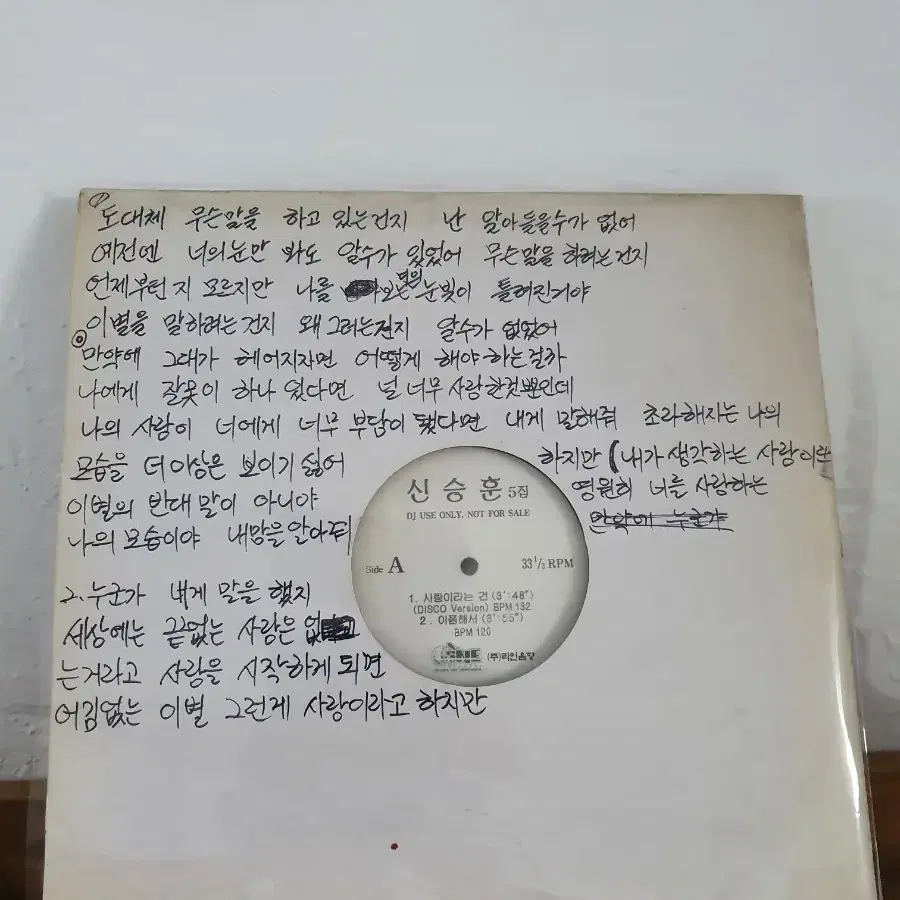 ① 도대체 무슨말을 하고 있는건지 난 알아들을수가 없어
예전엔 너의눈만 봐도 알수가 있었어 무슨말을 하려는건지
언제부턴지 모르지만 나를 보는 눈빛이 틀려진거야
이별을 말하려는건지 왜그러는건지 알수가 없었어
◎ 만약에 그대가 헤어지자면 어떻게 해야하는걸까
나에게 잘못이 하나 있다면 널 너무 사랑한것뿐인데
나의 사랑이 너에게 너무 부담이 됐다면 내게 말해줘 초라해지는 나의
모습을 더이상은 보이기 싫어
하지만 (내가 생각하는 사랑이란
이별의 반대말이 아니야
영원히 너를 사랑하는
나의 모습이야 내맘을알아줘
만약에 누군가
2. 누군가 내게 말을 했지
세상에는 끝없는 사랑은 없
는거라고 사랑을 시작하게 되면
어김없는 이별 그런게 사랑이라고 하지만
신승훈 5집
DJ USE ONLY, NOT FOR SALE
Side A
33 1/3 RPM
1. 사랑이라는 건 (3':48")
(DISCO Version) BPM 132
2. 이쯤해서 (3':55")
BPM 120
(주)라인음향